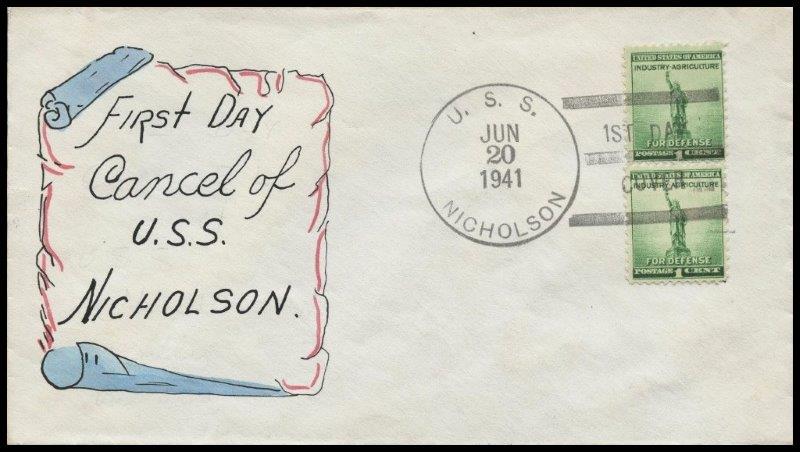 First Day
Cancel of
U.S.S.
Nicholson.
U. S. S.
JUN
20
1941
NICHOLSON
1ST DAY
COVER
UNITED STATES OF AMERICA
INDUSTRY-AGRICULTURE
FOR DEFENSE
POSTAGE 1 CENT
UNITED STATES OF AMERICA
INDUSTRY-AGRICULTURE
FOR DEFENSE
POSTAGE 1 CENT